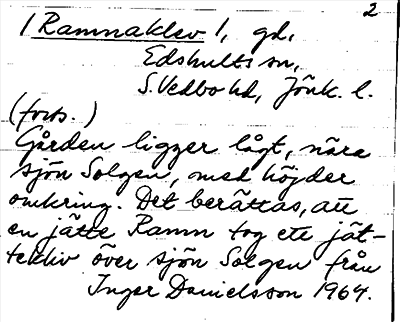 2
/Ramnaklev/, gd,
Edshults sn,
S. Vedbo hd, Jönk. l.
(forts.)
Gården ligger lågt, nära
sjön Solgen, med höjder
omkring. Det berättas, att
en jätte Ramn tog ett jät-
tekliv över sjön Solgen från
Inger Danielsson 1964.